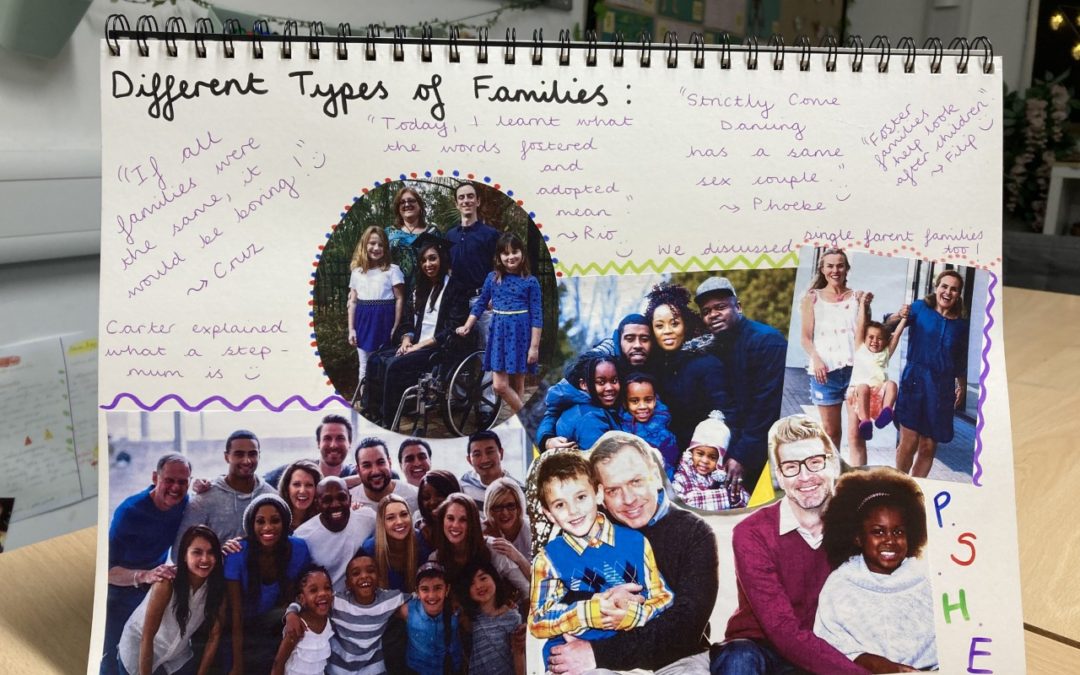 Different Types of Families :
"If all
families were
the same, it
would be boring!"
~> Cruz
"Today, I learnt what
the words fostered
and
adopted
mean"
~> Rio
"Strictly Come
Dancing
has a same
sex couple"
~> Phoebe
"Foster
families
help look
after children"
~> Filip
We discussed single parent families
too!
Carter explained
what a step-
mum is
P.
S.
H.
E